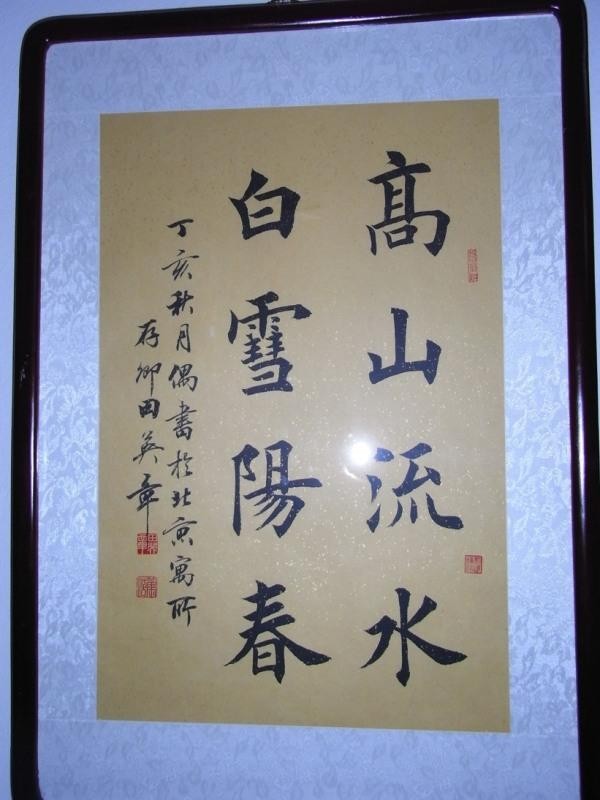 髙山流水
白雪陽春
丁亥秋月偶書於北京寓所
存卿田英章